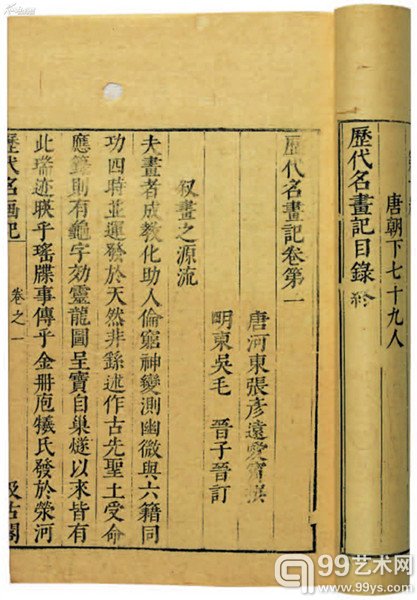 唐朝下七十九人
歷代名畫記目錄終
歷代名畫記卷第一
唐河東張彦遠愛賓撰
明東吳毛 晉子晉訂
叙畫之源流
夫畫者成教化助人倫窮神變測幽微與六籍同
功四時並運發於天然非繇述作古先聖王受命
應籙則有龜字効靈龍圖呈寶自巢燧以來皆有
此瑞迹暎乎瑤牒事傳乎金册庖犧氏發於滎河
歷代名画记 卷之一 汲古閣
99艺术网
www.99ys.com